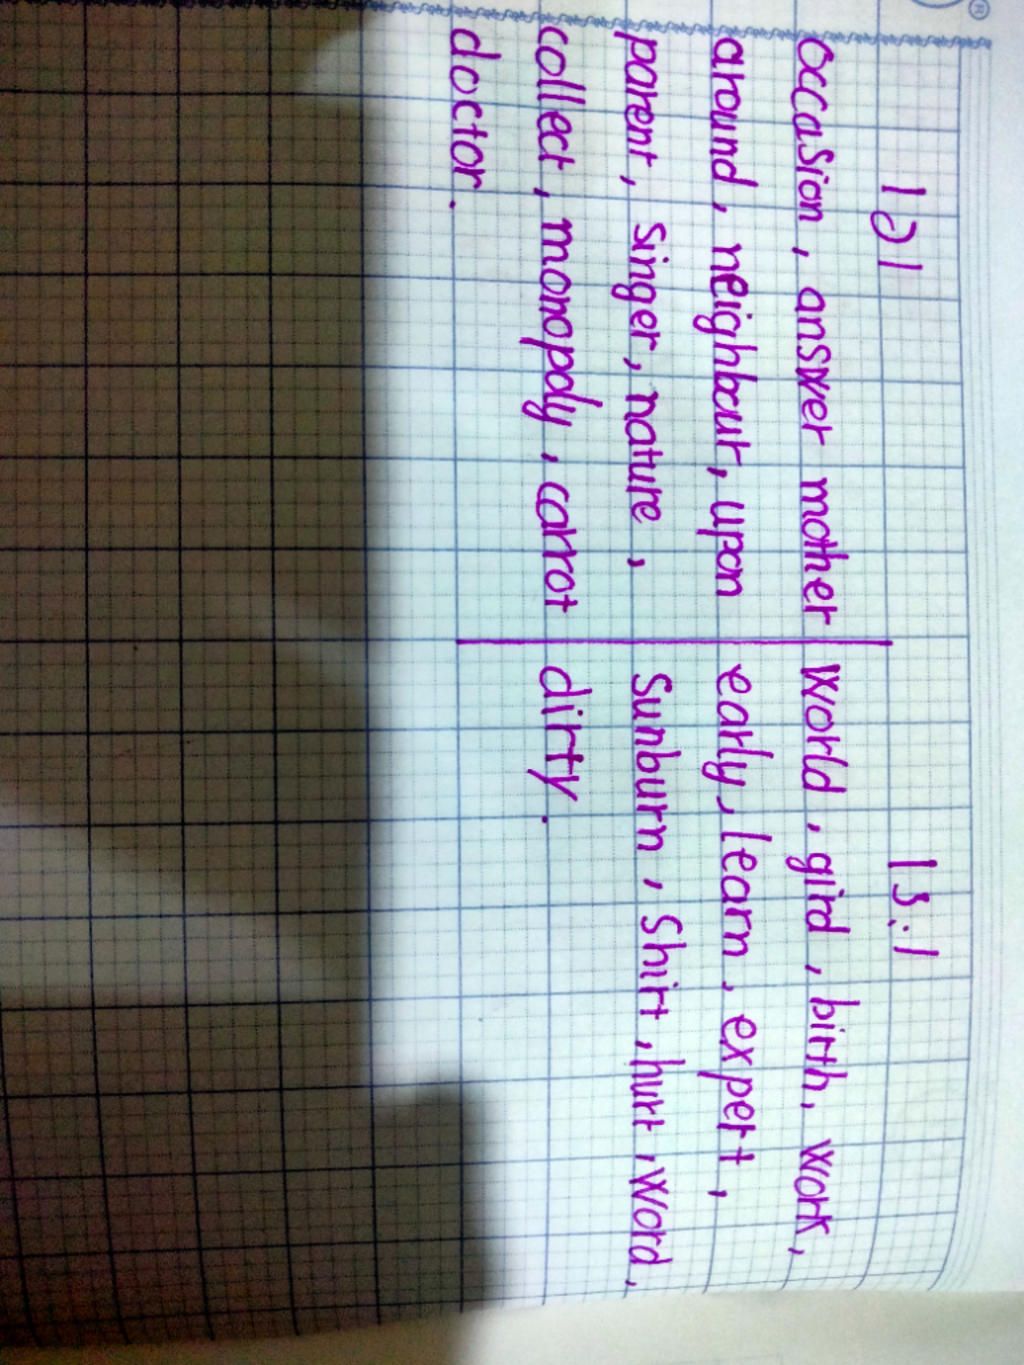 /ə/
/ɜː/
occasion, answer mother
around, neighbour, upon
parent, singer, nature,
collect, monopoly, carrot
doctor.
world, gird, birth, work,
early, learn, expert,
sunburn, shirt, hurt, word,
dirty.
®